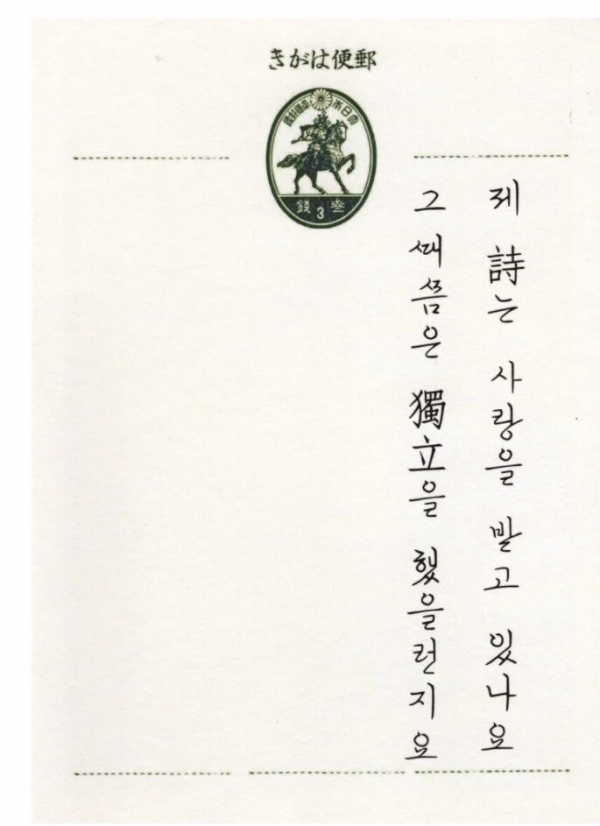 きがは便郵
制國帝本日大
錢 3 叁
제 詩는 사랑을 받고 있나요
그 때쯤은 獨立을 했을런지요